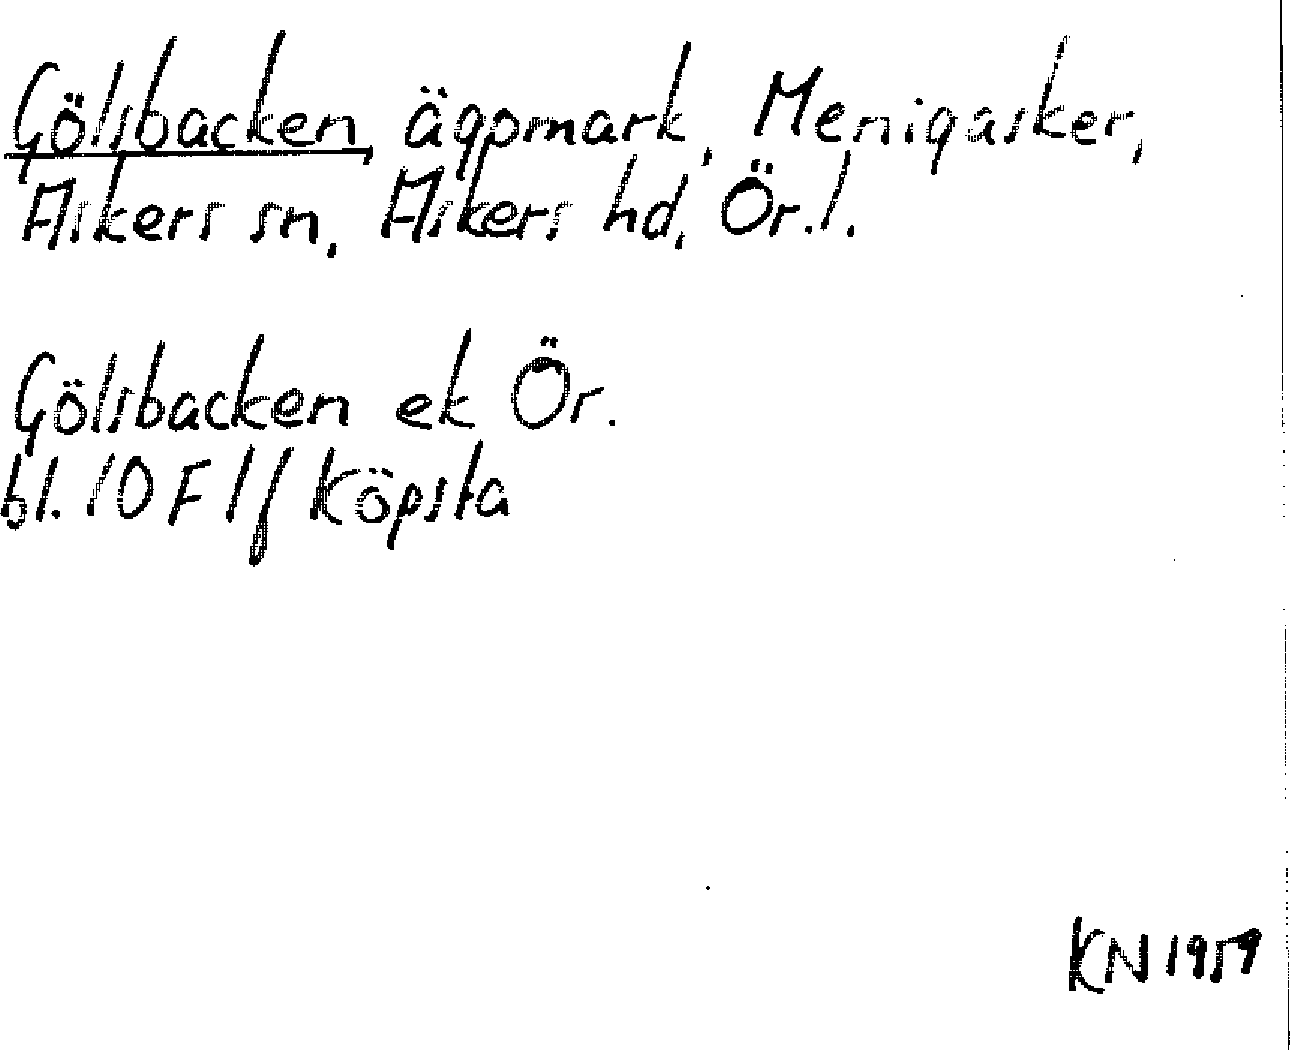 Gölsbacken, ägomark, Menigasker,
Askers sn, Askers hd, Ör.l.
Gölsbacken ek Ör.
bl. 10F1f Köpsta
KN 1959